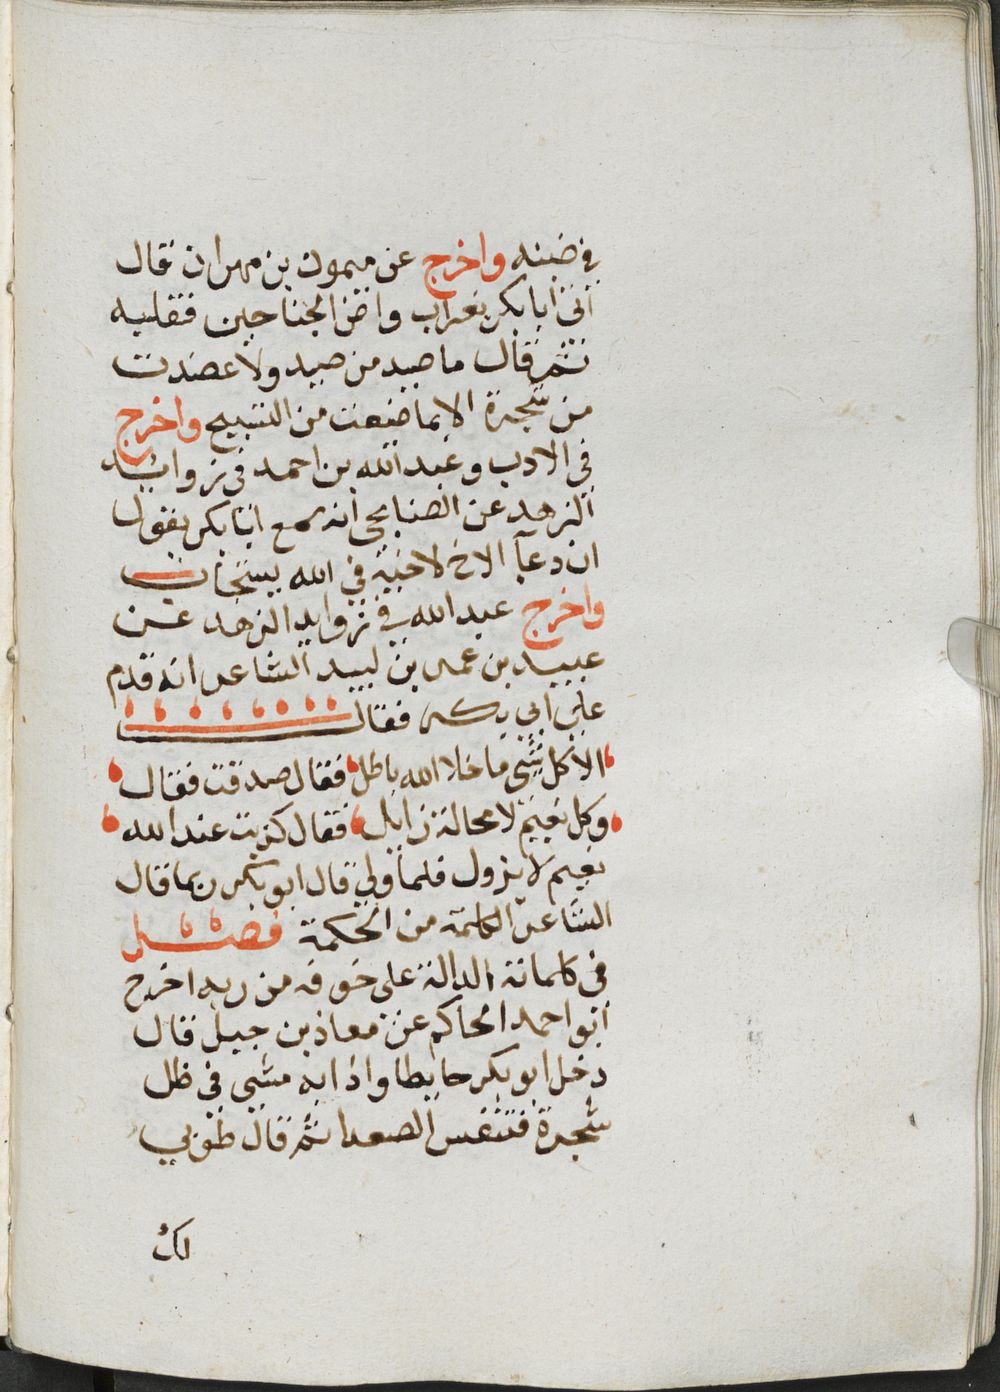 في ضبنه واخرج عن ميمون بن مهران قال
اتى ابا بكر بغراب وافر الجناحين فقلبه
ثم قال ما صيد من صيد ولا عضدت
من شجرة الا بما ضيعت من التسبيح واخرج
في الادب وعبد الله بن احمد في زوايد
الزهد عن الصنابحي انه سمع ابا بكر يقول
ان دعآ الاخ لاخيه في الله يستجاب
واخرج عبد الله في زوايد الزهد عن
عبيد بن عمير بن لبيد الشاعر انه قدم
على ابي بكر فقال
الا كل شي ما خلا الله باطل فقال صدقت فقال
وكل نعيم لا محالة زايل فقال كذبت عند الله
نعيم لا يزول فلما ولي قال ابو بكر ربما قال
الشاعر الكلمة من الحكمة فصل
في كلماته الدالة على خوفه من ربه اخرج
ابو احمد الحاكم عن معاذ بن جبل قال
دخل ابو بكر حايطا واذا به مشي في ظل
شجرة فتنفس الصعدا ثم قال طوبي
لك